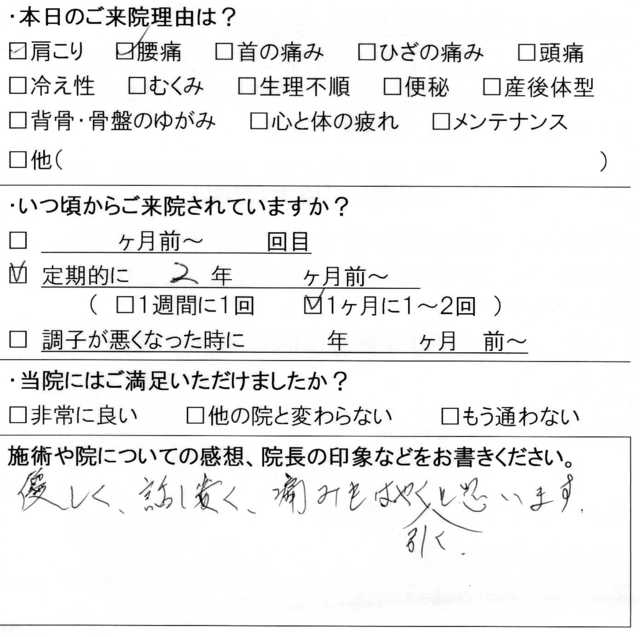 ・本日のご来院理由は？
☑肩こり ☑腰痛 □首の痛み □ひざの痛み □頭痛
□冷え性 □むくみ □生理不順 □便秘 □産後体型
□背骨・骨盤のゆがみ □心と体の疲れ □メンテナンス
□他( )
・いつ頃からご来院されていますか？
□ ヶ月前～ 回目
☑ 定期的に 2 年 ヶ月前～
( □1週間に1回 ☑1ヶ月に1～2回 )
□ 調子が悪くなった時に 年 ヶ月 前～
・当院にはご満足いただけましたか？
□非常に良い □他の院と変わらない □もう通わない
施術や院についての感想、院長の印象などをお書きください。
優しく、話し安く、痛みもはやくと思います.
引く.